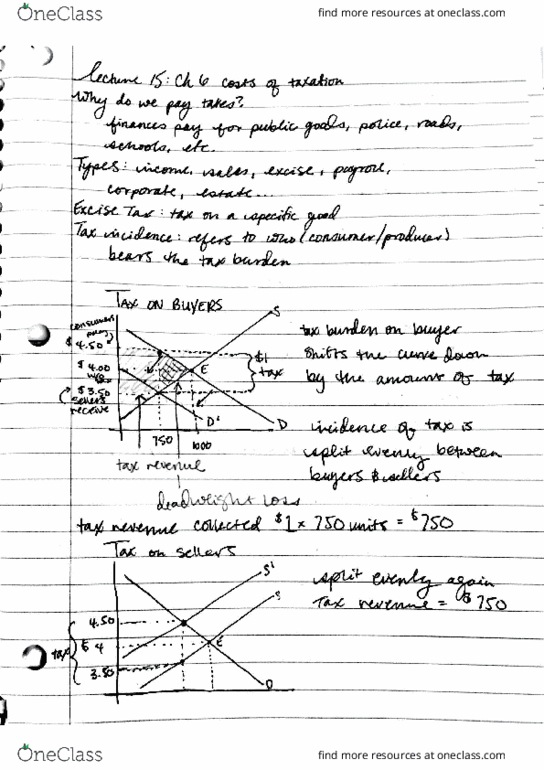 OneClass
find more resources at oneclass.com
Lecture 15: Ch 6 costs of taxation
Why do we pay taxes?
finances pay for public goods, police, roads,
schools, etc.
Types: income, sales, excise, payroll,
corporate, estate...
Excise Tax: tax on a specific good
Tax incidence: refers to who (consumer/producer)
bears the tax burden
TAX ON BUYERS
S
consumers
pay
$4.50
$4.00
$3.50
sellers
receive
E
$1
tax
D'
D
750
1000
tax revenue
deadweight loss
tax burden on buyer
shifts the curve down
by the amount of tax
incidence of tax is
split evenly between
buyers & sellers
tax revenue collected $1 x 750 units = $750
Tax on sellers
S'
S
4.50
tax
$4
3.50
E
D
split evenly again
Tax revenue = $750
OneClass
find more resources at oneclass.com